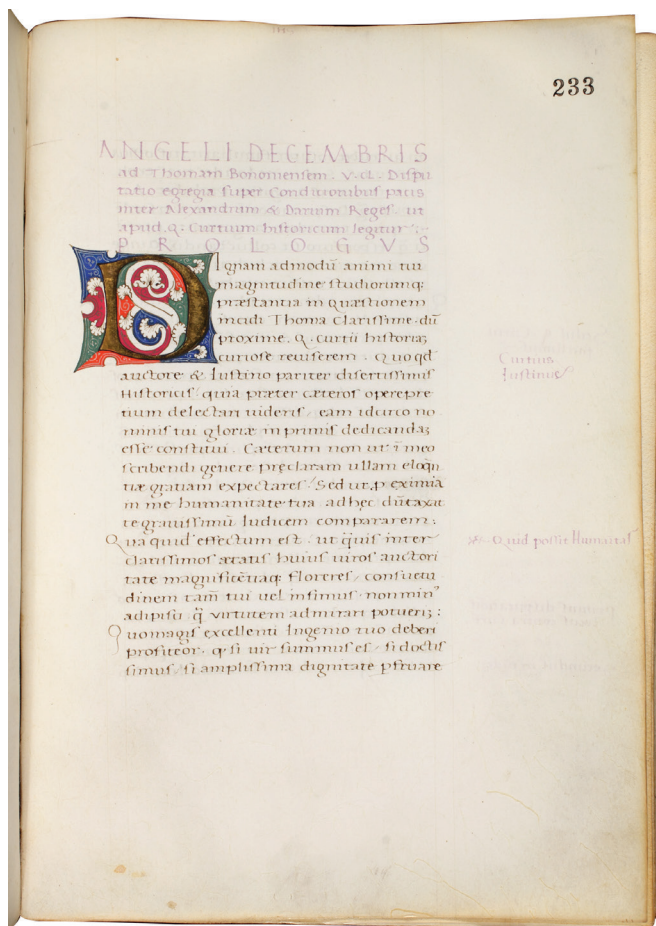 233
ANGELI DECEMBRIS
ad Thomam Bonomensem. V. cl. Dispu
tatio egregia super Conditionibus pacis
inter Alexandrum & Darium Reges. ut
apud. Q. Curtium historicum legitur.
PROLOGVS
Dignam admodū animi tui
magnitudine studiorumq;
præstantia in Quæstionem
incidi Thoma Clarissime. dū
proxime. Q. curtii historiaꝫ
curiose reuiserem. Quo qđ
auctore & Iustino pariter disertissimis
Historicis quia præter cæteros operepre
tium delectari uideris, eam idcirco no
minis tui gloriæ in primis dedicandaꝫ
esse constitui. Cæterum non ut ī meo
scribendi genere pręclaram ullam eloqn̄
tiæ gratiam expectares / Sed ut ꝓ eximia
in me humanitate tua ad hęc dūtaxat
te grauissimū Iudicem compararem:
Qua quid effectum est. ut q̈uis inter
clarissimos ætatis huius uiros auctori
tate magnificētiaq; floreres, consuetu
dinem tam̄ tui uel infimus non min⁹
adipisci q̈ virtutem admirari potueriꝫ:
Quo magis excellenti Ingenio tuo deberi
profiteor. q. si uir summus es, si doctis
simus, si amplissima dignitate p̱stuare
Curtius
Iustinus
Quid possit Humanitas